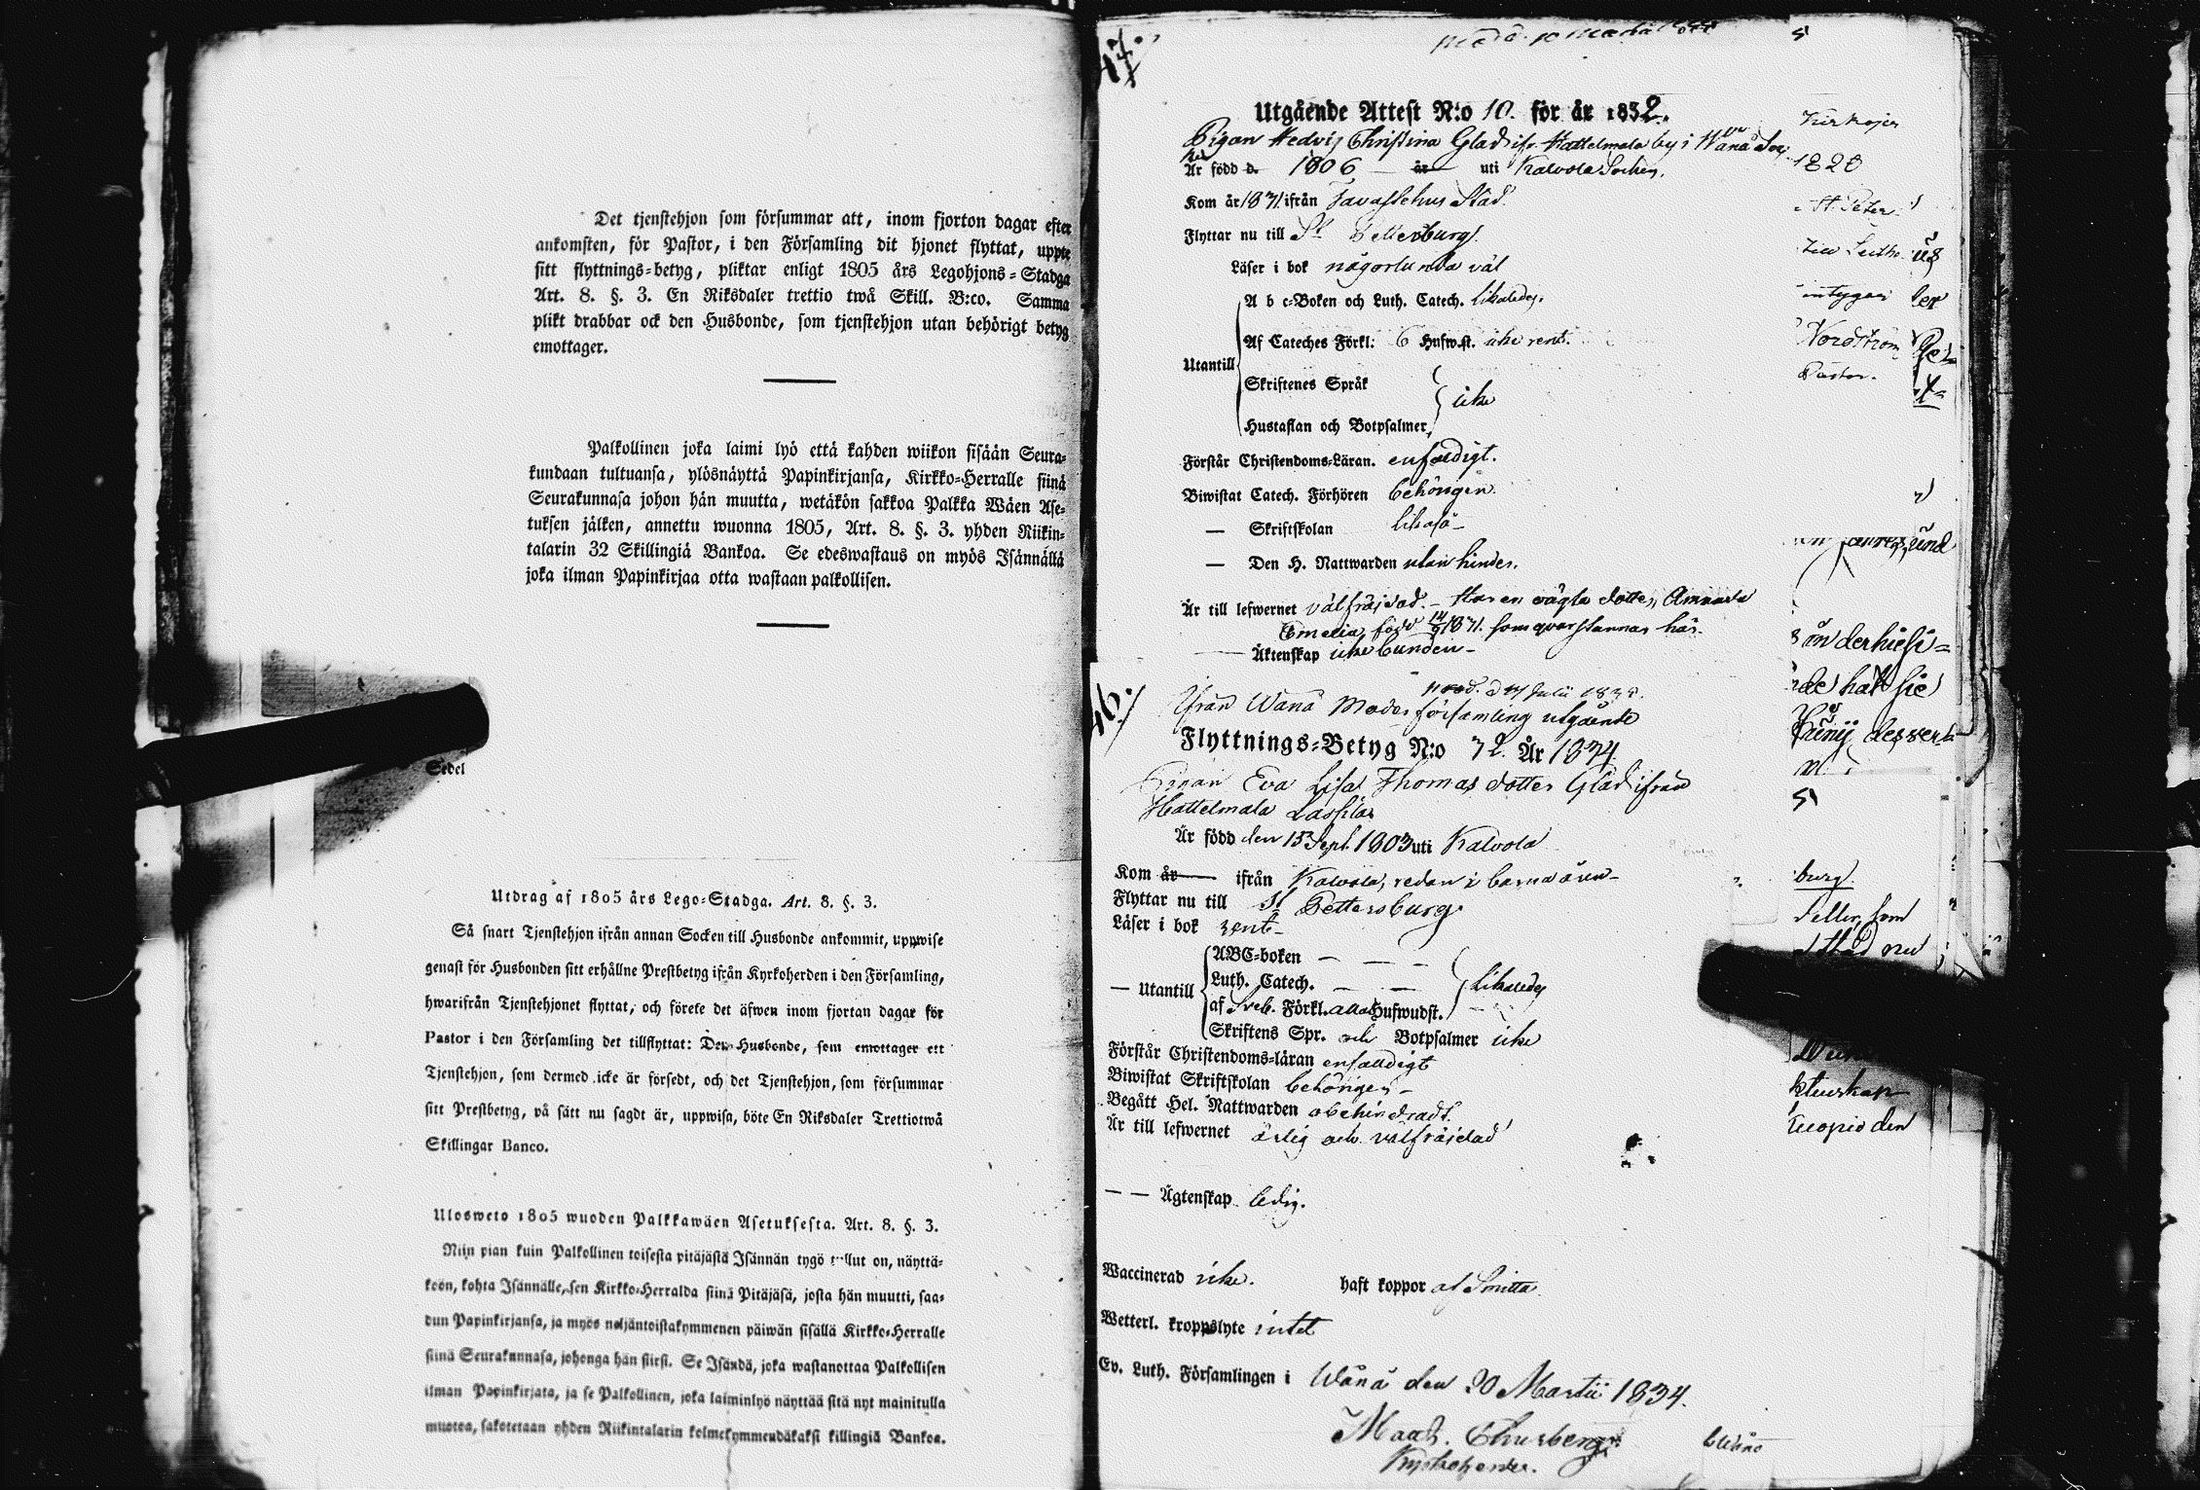 Det tjenstehjon som försummar att, inom fjorton dagar efter
ankomsten, för Pastor, i den Församling dit hjonet flyttat, uppte
sitt flyttnings-betyg, pliktar enligt 1805 års Legohjons-Stadga
Art. 8. §. 3. En Riksdaler trettio twå Skill. B:co. Samma
plikt drabbar ock den Husbonde, som tjenstehjon utan behörigt betyg
emottager.
Palkollinen joka laimi lyö että kahden wiikon sisään Seura-
kundaan tultuansa, ylösnäyttä Papinkirjansa, Kirkko-Herralle siinä
Seurakunnasa johon hän muutta, wetäkön sakkoa Palkka Wäen Ase-
tuksen jälken, annettu wuonna 1805, Art. 8. §. 3. yhden Riikin-
talarin 32 Skillingiä Bankoa. Se edeswastaus on myös Isännällä
joka ilman Papinkirjaa otta wastaan palkollisen.
Sedel
Utdrag af 1805 års Lego-Stadga. Art. 8. §. 3.
Så snart Tjenstehjon ifrån annan Socken till Husbonde ankommit, uppwise
genast för Husbonden sitt erhållne Prestbetyg ifrån Kyrkoherden i den Församling,
hwarifrån Tjenstehjonet flyttat, och förete det äfwen inom fjortan dagar för
Pastor i den Församling det tillflyttat: Den Husbonde, som emottager ett
Tjenstehjon, som dermed icke är försedt, och det Tjenstehjon, som försummar
sitt Prestbetyg, på sätt nu sagdt är, uppwisa, böte En Riksdaler Trettiotwå
Skillingar Banco.
Ulosweto 1805 wuoden Palkkawäen Asetuksesta. Art. 8. §. 3.
Niin pian kuin Palkollinen toisesta pitäjästä Isännän tygö tullut on, näyttä-
köön, kohta Isännälle, sen Kirkko-Herralda siinä Pitäjäsä, josta hän muutti, saa-
dun Papinkirjansa, ja myös neljäntoistakymmenen päiwän sisällä Kirkko-Herralle
siinä Seurakunnasa, johonga hän siirsi. Se Isändä, joka wastanottaa Palkollisen
ilman Papinkirjata, ja se Palkollinen, joka laiminlyö näyttää sitä nyt mainitulla
muotoa, sakotetaan yhden Riikintalarin kolmekymmendäkaksi killingiä Bankoa.
47.
Utgående Attest N:o 10. för år 1832.
Pigan Hedvig Christina Glad ifr. Hattelmala by i Wånå Sn
Är född d. 1806 år uti Kalvola Socken.
Kom år 1831 ifrån Tavastehus Stad.
Flyttar nu till St Pettersburg.
Läser i bok någorlunda väl
A b c-Boken och Luth. Catech. likaledes.
Af Cateches Förkl: 6 Hufwst. icke rent.
Utantill
Skriftenes Språk
icke
Hustaflan och Botpsalmer
Förstår Christendoms-Läran. enfaldigt.
Biwistat Catech. Förhören behörigen.
— Skriftskolan likaså —
— Den H. Nattwarden utan hinder.
Är till lefwernet välfräjdad. – Har en oägta dotter, Amanda
Emelia, född 1831. som qvarstannar här.
— Äktenskap icke bunden –
46.
Ifrån Wånå Moderförsamling utgående
Flyttnings-Betyg N:o 32. År 1834
Pigan Eva Lisa Thomas dotter Glad ifrån
Hattelmala Lassila
Är född den 15 Sept. 1803 uti Kalvola
Kom år ifrån Kalvola, redan i barna åren –
Flyttar nu till St Pettersburg.
Läser i bok rent –
ABC-boken — — —
Luth. Catech. — —
likaledes
— Utantill
af Sveb. Förkl. alla Hufwudst.
Skriftens Spr. och Botpsalmer icke
Förstår Christendoms-läran enfaldigt
Biwistat Skriftskolan behörigen –
Begått Hel. Nattwarden obehindradt.
Är till lefwernet ärlig och välfräjdad
— — Ägtenskap ledig.
Waccinerad icke. haft koppor af Smitta
Wetterl. kroppslyte intet
Ev. Luth. Församlingen i Wånå den 20 Martii 1834.
Kyrkoherde.
1820
St. Peter
Nordström
Pastor.
burg
Kuopio den